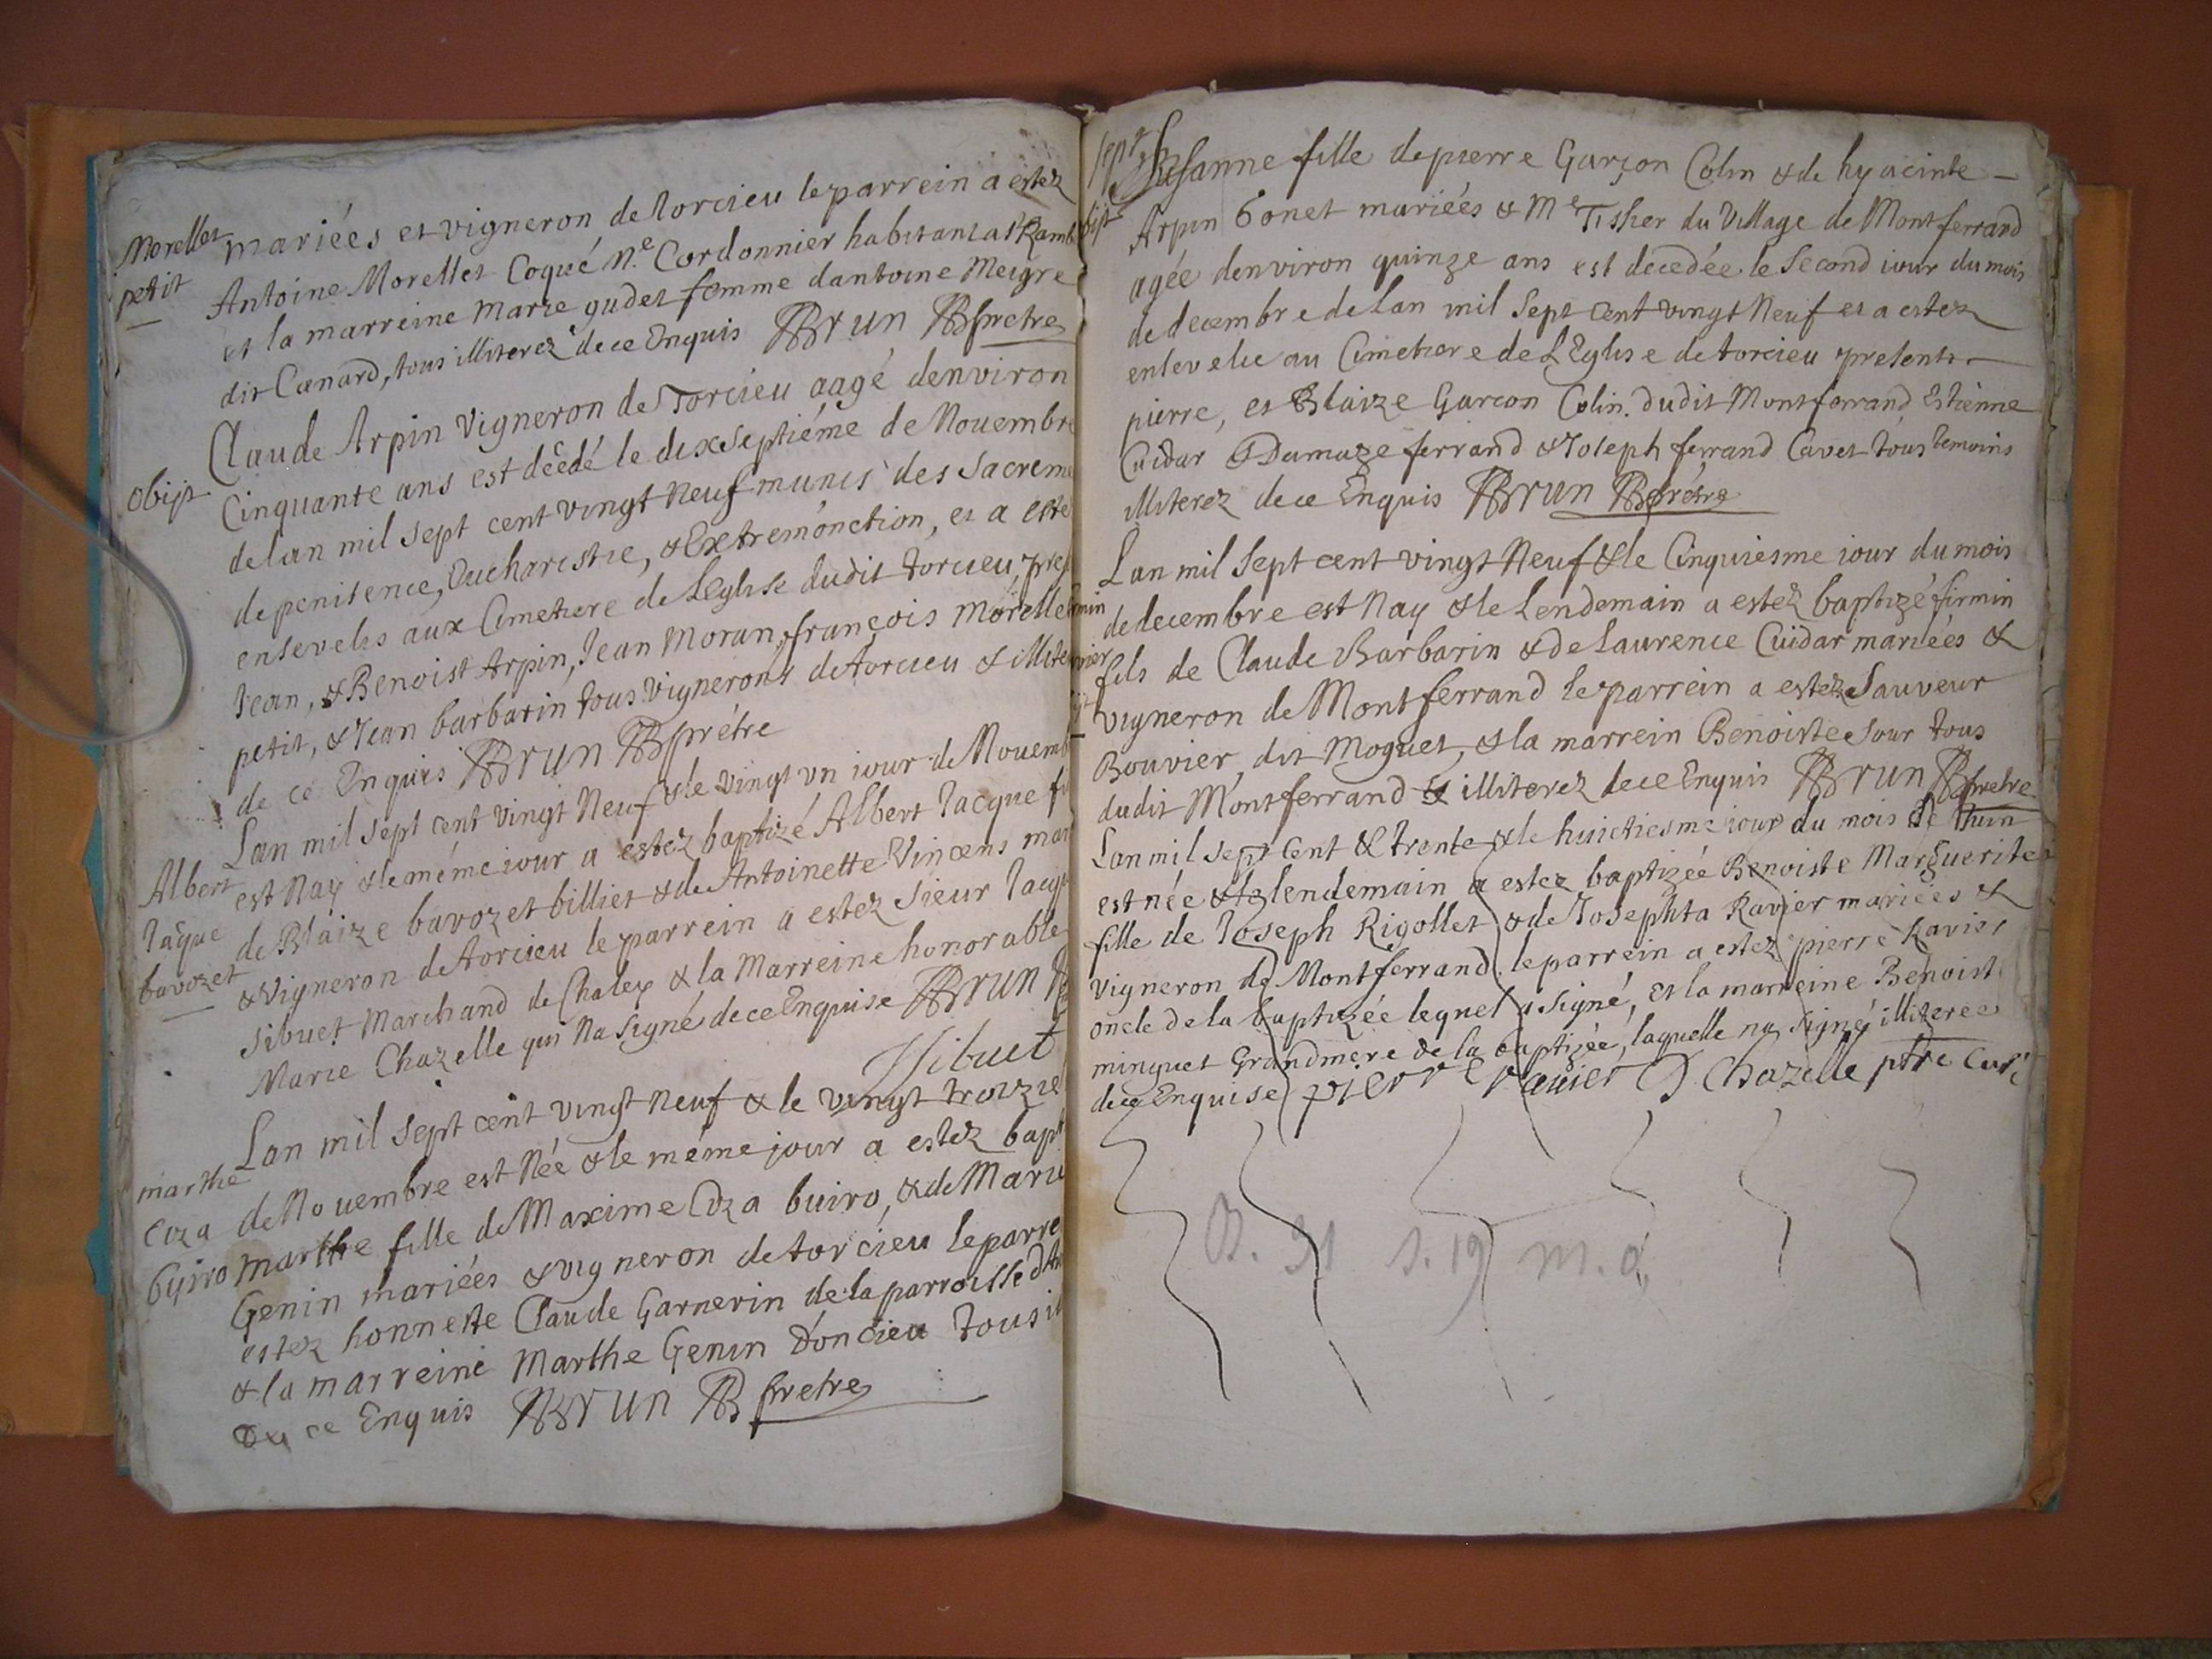 Morellet
petit
mariées et vigneron de torcieu le parrein a estez
Antoine Morellet Coqué M.e Cordonnier habitant a St Ramb
et la marreine Marie gudet femme dantoine Meigre
dit Canard, tous illiterez de ce Enquis Brun pretre
obijt
Claude Arpin Vigneron de Torcieu aagé denviron
Cinquante ans est décédé le dixseptiéme de Nouembre
de lan mil sept cent vingt neuf munis des Sacrem
de penitence, Eucharistie, & Extremonction, et a este
ensevelis aux Cimetiere de LEglise dudit torcieu, pres
Jean, & Benoist Arpin, Jean Moran, françois Morelle
petit, & Jean barbarin tous vignerons de torcieu & illite
de ce Enquis Brun prétre
Albert
Jacque
bavozet
Lan mil sept cent vingt Neuf & le vingt vn iour de Nouemb
est Nay & le méme iour a estez baptizé Albert Jacque fi
de Blaize bavozet billiet & de Antoinette Vincens mar
& Vigneron de torcieu le parrein a estez Sieur Jacqu
Sibuet Marchand de Chaley & la Marreine honorable
Marie Chazelle qui Na Signé de ce Enquise Brun
JSibuet
marthe
Coza
buiro
Lan mil sept cent vingt neuf & le vingt troizie
de Nouembre est Née & le méme jour a estez bapt
Marthe fille de Maxime Coza buiro, & de Marie
Genin mariées & vigneron de torcieu le parre
estez honneste Claude Garnerin de la parroisse dA
& la marreine Marthe Genin Doncieu tous il
de ce Enquis Brun pretre
obijt
Susanne fille de pierre Garçon Colin & de hyacinte
Arpin bonet mariées & M.e Tissier du Village de Montferrand
agée denviron quinze ans est decedée le Second iour du mois
de decembre de Lan mil Sept Cent vingt Neuf et a estez
ensevelie au Cimetiere de LEglise de torcieu presents
pierre, et Blaize Garcon Colin. dudit Montferrand Estienne
Cuidar Damaze ferrand & Joseph ferrand Cavet tous temoins
illiterez de ce Enquis Brun prétre
Lan mil Sept cent vingt Neuf & le Cinquiesme iour du mois
de decembre est Nay & le Lendemain a estez baptizé firmin
fils de Claude Barbarin & de Laurence Cuidar mariées &
vigneron de Montferrand le parrein a estez Sauveur
Bouvier, dit Moguet, & la marrein Benoiste Sour tous
dudit Montferrand & illiterez de ce Enquis Brun pretre
Lan mil sept Cent & trente & le huictiesme iour du mois de Juin
est née & le lendemain a estee baptizée Benoiste Marguerite
fille de Joseph Rigollet & de Josephta Ravier mariées &
vigneron de Montferrand. le parrein a estez pierre Ravier
oncle de la baptizée lequel a Signé, et la marreine Benoiste
minguet Grandmere de la baptizée, laquelle na Signé illiteree
de ce Enquise pierre ravier Chazelle ptre Curé
B. 31 S. 19 M. 0